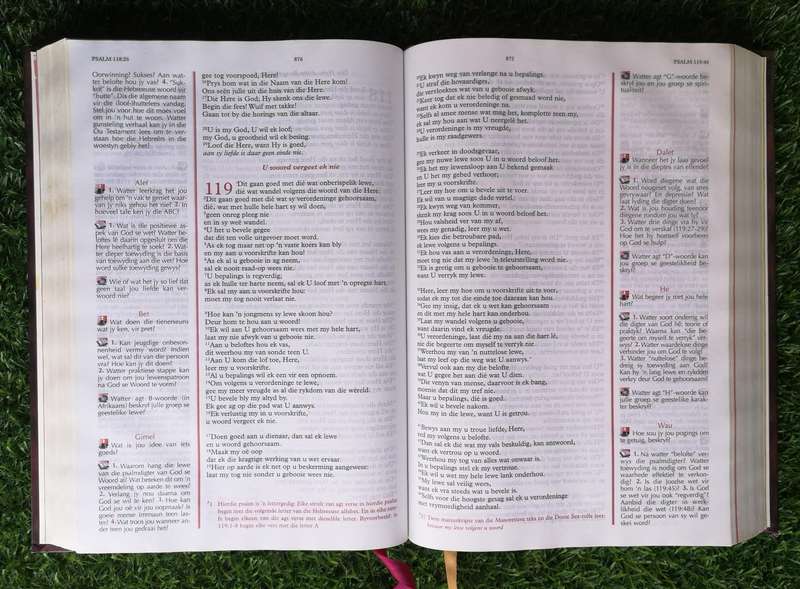 PSALM 118:25
874
Oorwinning? Sukses? Aan wat-
ter belofte hou jy vas? 4. "Suk-
kot" is die Hebreeuse woord vir
"hutte". Dis die algemene naam
vir die (loof-)huttefees vandag.
Stel jou voor hoe dit moes voel
om in 'n hut te woon. Watter
gunsteling verhaal kan jy in die
Ou Testament lees om te ver-
staan hoe die Hebreërs in die
woestyn gebly het?
Alef
1. Watter leerkrag het jou
gehelp om 'n vak te geniet waar-
van jy niks gehou het nie? 2. In
hoeveel tale ken jy die ABC?
1. Wat is die positiewe as-
pek van God se wet? Watter be-
loftes lê daarin opgesluit om die
Here heelhartig te soek? 2. Wat-
ter dieper toewyding is die basis
van toewyding aan die wet? Hoe
word sulke toewyding gewys?
Wie of wat het jy so lief dat
geen taal jou liefde kan ver-
woord nie?
Bet
Wat doen die tieneneuns
wat jy ken, vir pret?
1. Kan jeugdige onbeson-
nenheid vermy word? Indien
wel, wat sal dit van die persoon
vra? Hoe kan jy dit doen?
2. Watter praktiese stappe kan
jy doen om jou lewenspatroon
na God se Woord te vorm?
Watter agt B-woorde (in
Afrikaans) beskryf julle groep se
geestelike lewe?
Gimel
Wat is jou idee van iets
goeds?
1. Waarom hang die lewe
van die psalmdigter van God se
Woord af? Wat beteken dit om 'n
vreemdeling op aarde te wees?
2. Verlang jy nou daarna om
God se wil te ken? 3. Hoe kan
God jou oë vir jou oopmaak? Is
goeie mense immuun teen las-
ter? 4. Wat troos jou wanneer an-
der teen jou gedraai het?
gee tog voorspoed, Here!
²⁶Prys hom wat in die Naam van die Here kom!
Ons seën julle uit die huis van die Here.
²⁷Die Here is God; Hy skenk ons die lewe.
Begin die fees! Wuif met takke!
Gaan tot by die horings van die altaar.
²⁸U is my God, U wil ek loof;
my God, u grootheid wil ek besing.
²⁹Loof die Here, want Hy is goed,
aan sy liefde is daar geen einde nie.
U woord vergeet ek nie
119 ¹Dit gaan goed met dié wat onberispelik lewe,
dié wat wandel volgens die woord van die Here.
²Dit gaan goed met dié wat sy verordeninge gehoorsaam,
dié, wat met hulle hele hart sy wil doen,
³geen onreg pleeg nie
en in sy weë wandel.
⁴U het u bevele gegee
dat dit ten volle uitgevoer moet word.
⁵As ek tog maar net op 'n vaste koers kan bly
en my aan u voorskrifte kan hou!
⁶As ek al u gebooie in ag neem,
sal ek nooit raad-op wees nie.
⁷U bepalings is regverdig;
as ek hulle ter harte neem, sal ek U loof met 'n opregte hart.
⁸Ek sal my aan u voorskrifte hou:
moet my tog nooit verlaat nie.
⁹Hoe kan 'n jongmens sy lewe skoon hou?
Deur hom te hou aan u woord!
¹⁰Ek wil aan U gehoorsaam wees met my hele hart,
laat my nie afwyk van u gebooie nie.
¹¹Aan u beloftes hou ek vas,
dit weerhou my van sonde teen U.
¹²Aan U kom die lof toe, Here,
leer my u voorskrifte.
¹³Al u bepalings wil ek een vir een opnoem.
¹⁴Om volgens u verordeninge te lewe,
gee my meer vreugde as al die rykdom van die wêreld.
¹⁵U bevele bly my altyd by.
Ek gee ag op die pad wat U aanwys.
¹⁶Ek verlustig my in u voorskrifte,
u woord vergeet ek nie.
¹⁷Doen goed aan u dienaar, dan sal ek lewe
en u woord gehoorsaam.
¹⁸Maak my oë oop
dat ek die kragtige werking van u wet ervaar.
¹⁹Hier op aarde is ek net op u beskerming aangewese:
laat my tog nie sonder u gebooie wees nie.
*1 Hierdie psalm is 'n lettergedig: Elke strofe van agt verse in hierdie psalm
begin met die volgende letter van die Hebreeuse alfabet. En in elke stro-
fe begin elkeen van die agt verse met dieselfde letter. Byvoorbeeld: In
Ps 119:1-8 begin elke vers met die letter A
875
PSALM 119:49
²⁰Ek kwyn weg van verlange na u bepalings.
²¹U straf die hovaardiges,
die vervloektes wat van u gebooie afwyk.
²²Keer tog dat ek nie beledig of gesmaad word nie,
want ek kom u verordeninge na.
²³Selfs al smee mense wat mag het, komplotte teen my,
ek sal my hou aan wat U neergelê het.
²⁴U verordeninge is my vreugde,
hulle is my raadgewers.
²⁵Ek verkeer in doodsgevaar,
gee my nuwe lewe soos U in u woord beloof het.
²⁶Ek het my lewensloop aan U bekend gemaak
en U het my gebed verhoor;
leer my u voorskrifte.
²⁷Leer my hoe om u bevele uit te voer.
Ek wil van u magtige dade vertel.
²⁸Ek kwyn weg van kommer,
skenk my krag soos U in u woord beloof het.
²⁹Hou valsheid ver van my af,
wees my genadig, leer my u wet.
³⁰Ek kies die betroubare pad,
ek lewe volgens u bepalings.
³¹Ek hou vas aan u verordeninge, Here,
moet tog nie dat my lewe 'n teleurstelling word nie.
³²Ek is gretig om u gebooie te gehoorsaam,
want U verryk my lewe.
³³Here, leer my hoe om u voorskrifte uit te voer,
sodat ek my tot die einde toe daaraan kan hou.
³⁴Gee my insig, dat ek u wet kan gehoorsaam
en dit met my hele hart kan onderhou.
³⁵Laat my wandel volgens u gebooie,
want daarin vind ek vreugde.
³⁶U verordeninge, laat dié my na aan die hart lê,
nie die begeerte om myself te verryk nie.
³⁷Weerhou my van 'n nuttelose lewe,
laat my leef op die weg wat U aanwys.
³⁸Vervul ook aan my die belofte
wat U gegee het aan dié wat U dien.
³⁹Die venyn van mense, daarvoor is ek bang,
noem dat dit my tref nie.
Maar u bepalings, dié is goed.
⁴⁰Ek wil u bevele nakom.
Hou my in die lewe, want U is getrou.
⁴¹Bewys aan my u troue liefde, Here,
red my volgens u belofte.
⁴²Dan sal ek die wat my vals beskuldig, kan antwoord,
want ek vertrou op u woord.
⁴³Weerhou my tog van alles wat onwaar is.
In u bepalings stel ek my vertroue.
⁴⁴Ek wil u wet my hele lewe lank onderhou.
⁴⁵My lewe sal veilig wees,
want ek vra steeds wat u bevele is.
⁴⁶Selfs voor die hoogste gesag sal ek u verordeninge
met vrymoedigheid aanhaal.
*1 Twee manuskripte van die Masoretiese teks en die Dooie See-rolle lees:
bewaar my lewe volgens u woord
Watter agt "G"-woorde be-
skryf jou en jou groep se spiri-
tualiteit?
Dalet
Wanneer het jy laas gevoel
jy is in die dieptes van ellende?
1. Word diegene wat die
Woord nougeset volg, van stres
gevrywaar? En depressie? Wat
laat lyding die digter doen?
2. Wat is jou houding teenoor
diegene rondom jou wat ly?
3. Watter drie dinge vra hy vir
God om te verskaf (119:27-29)?
Hoe het hy homself voorberei
op God se hulp?
Watter agt "D"-woorde kan
jou groep se geestelikheid be-
skryf?
He
Wat begeer jy met jou hele
hart?
1. Watter soort onderrig wil
die digter van God hê: teorie of
praktyk? Waarna kan "die be-
geerte om myself te verryk" ver-
wys? 2. Watter waardelose dinge
verhinder jou om God te volg?
3. Watter "nuttelose" dinge be-
dreig sy toewyding aan God?
Kan hy 'n lang lewe en rykdom
verkry deur God te gehoorsaam?
Watter agt "H"-woorde kan
julle groep se geestelike karak-
ter beskryf?
Wau
Hoe sou jy jou pogings om
te getuig, beskryf?
1. Na watter "belofte" ver-
wys die psalmdigter? Watter
toewyding is nodig om God se
waarhede effektief te verkon-
dig? 2. Is die Joodse wet vir
hom 'n las (119:45)? 3. Is God
se wet vir jou ook "regverdig"?
Ambisid die digter die werk-
likheid die wet (119:48)? Kan
God se persoon van sy wil ge-
skei word?